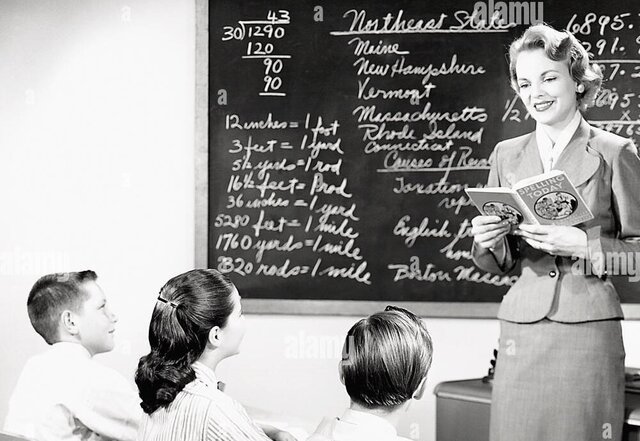 43
30)1290
120
90
90
12 inches = 1 foot
3 feet = 1 yard
5½ yards = 1 rod
16½ feet = 1 rod
36 inches = 1 yard
5280 feet = 1 mile
1760 yards = 1 mile
320 rods = 1 mile
Northeast State
Maine
New Hampshire
Vermont
Massachusetts
Rhode Island
Connecticut
Causes of Revo
Taxation
rep
English
Boston Massac
6895.
291.
SPELLING
TODAY
alamy
alamy
alamy
alamy